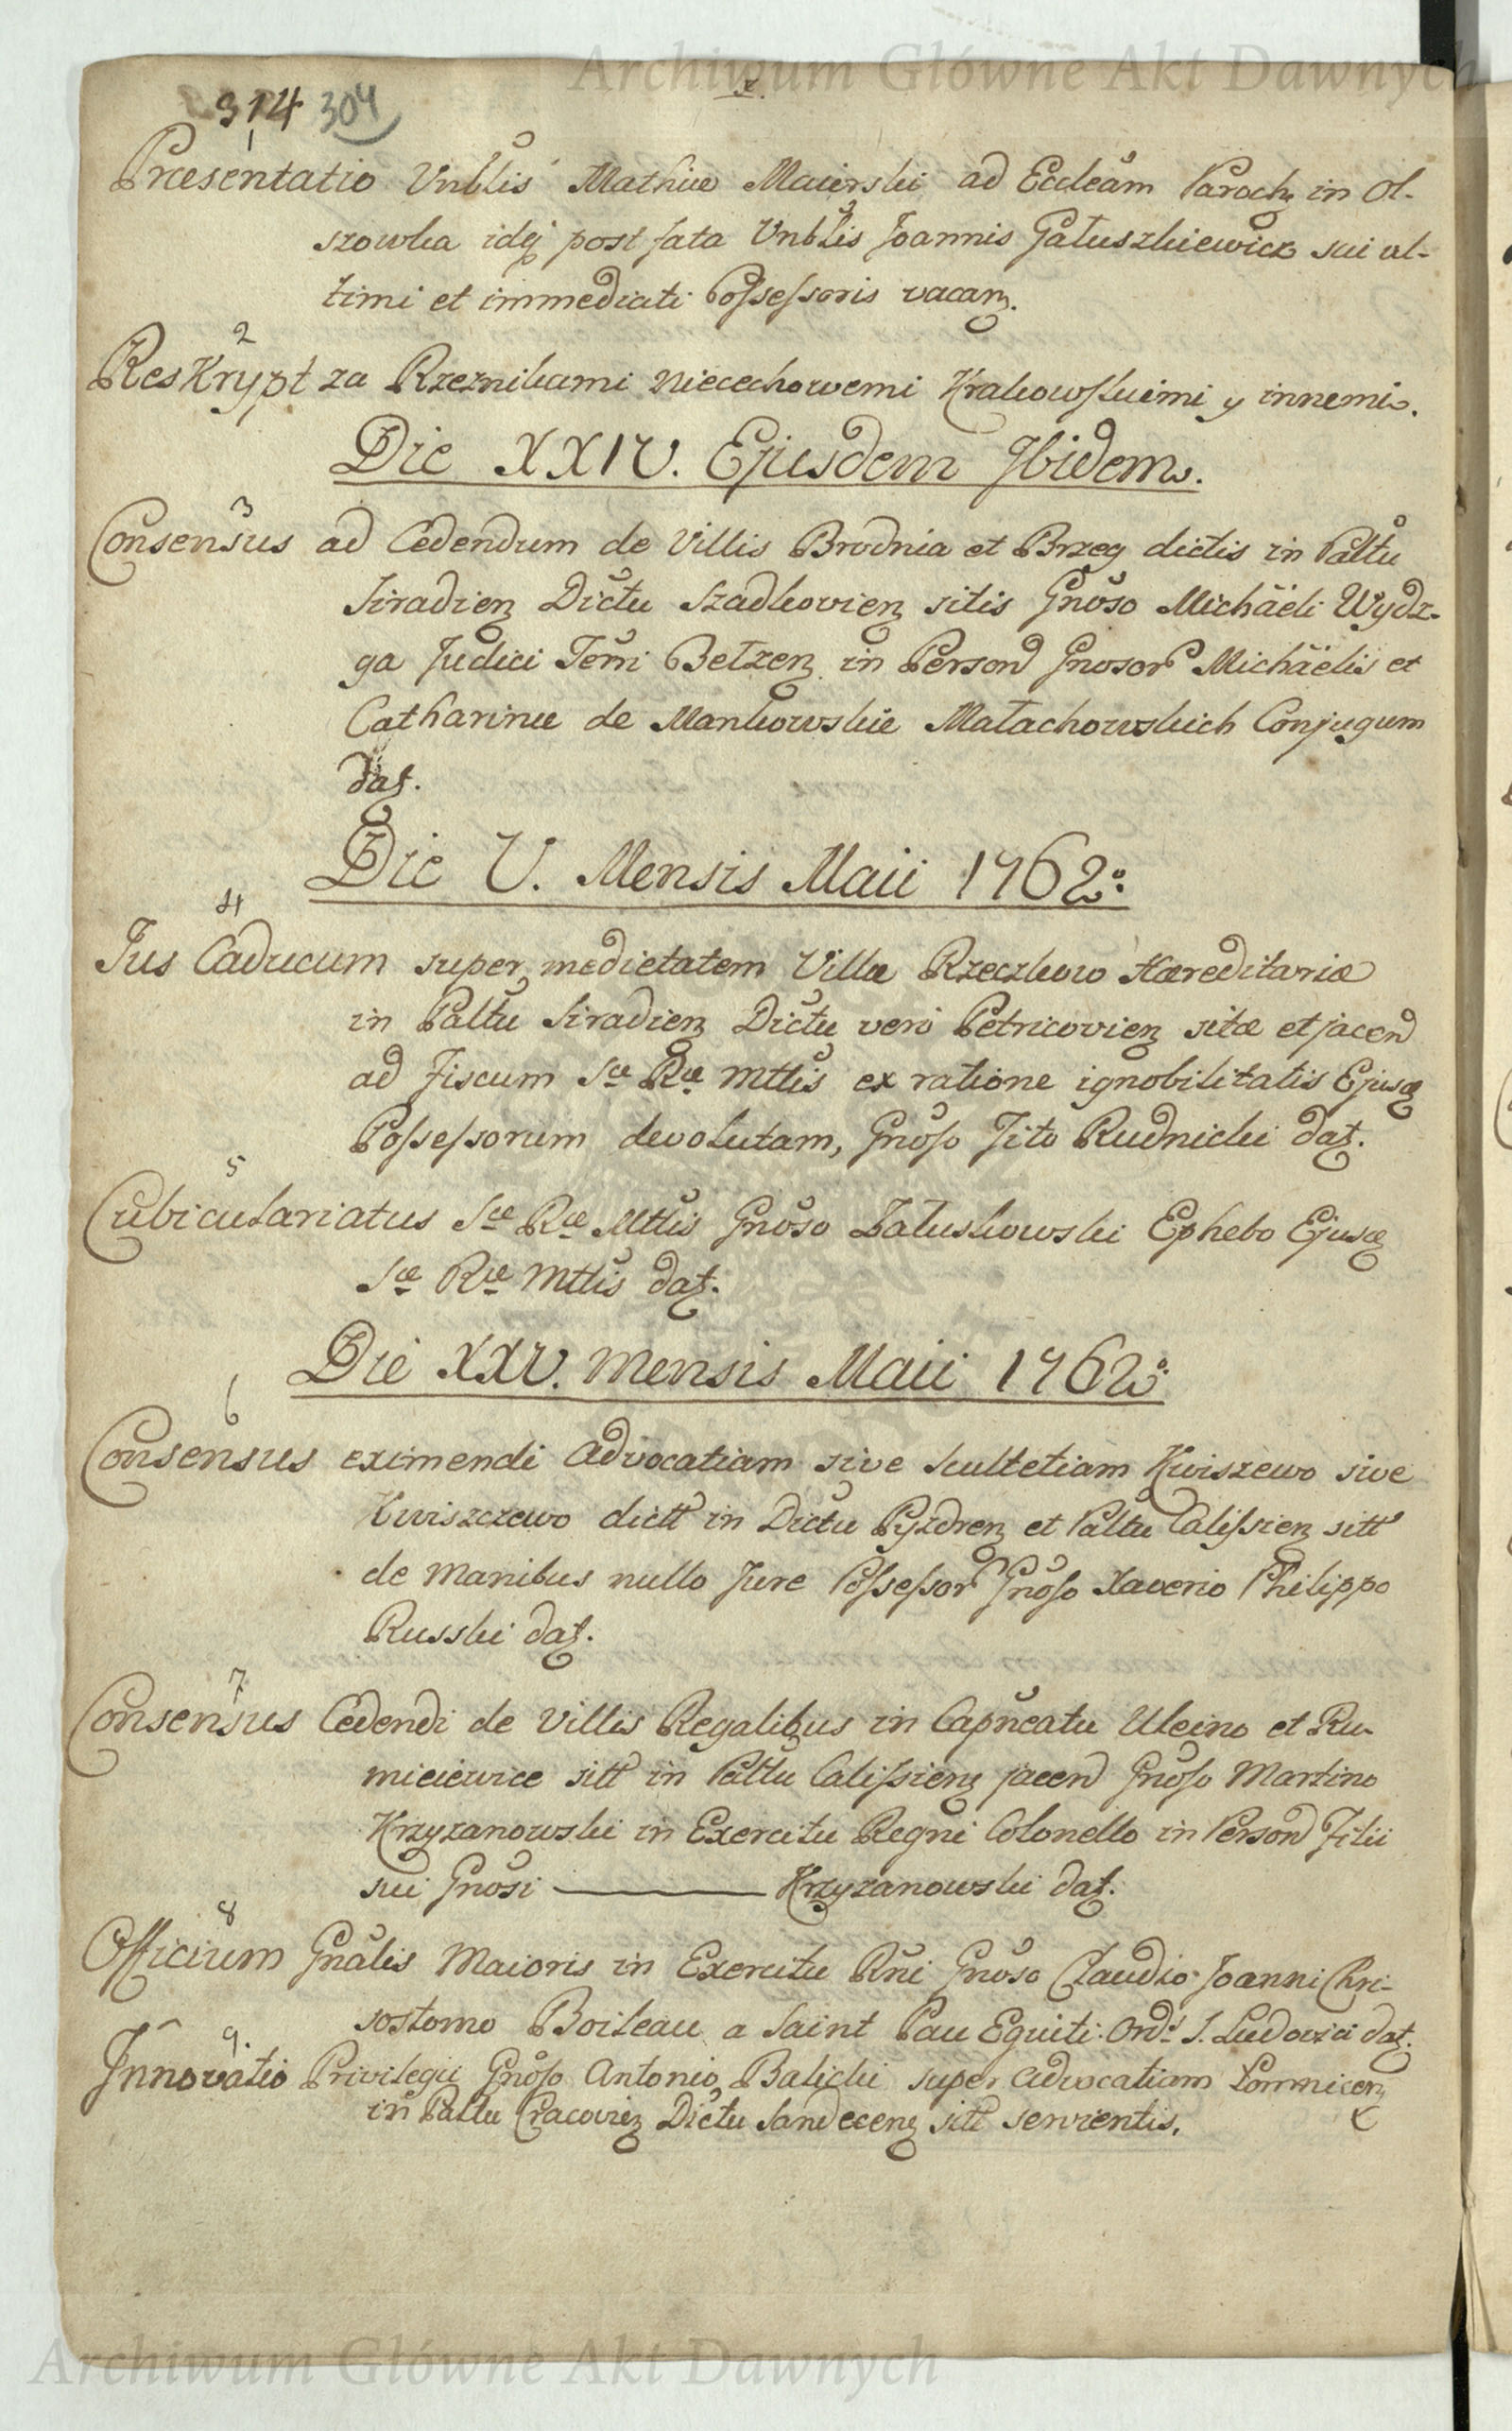 Archiwum Główne Akt Dawnych
314 304
x.
1
Præsentatio Vnblis Mathiæ Maierski ad Eccleãm Paroch. in Ol-
szowka idq̃ post fata Vnblis Joannis Gałuszkiewicz sui ul-
timi et immediati Possessoris vacanȝ.
2
Reskrypt za Rzeznikami niecechowemi Krakowskiemi y innemi.
Die XXIV. Ejusdem Ibidem.
3
Consensus ad Cedendum de Villis Brodnia et Brzeg dictis in Paltũ
Siradienȝ Dictũ Szadkovienȝ sitis Gnõso Michäeli Wydz-
ga Judici Terri Bełzenȝ in Person Gnosor Michäelis et
Catharinæ de Mankowskie Małachowskich Conjugum
datȝ.
Die V. Mensis Maii 1762º:
4
Jus Caducum super medietatem Villæ Rzeczkow Hæreditariæ
in Paltũ Siradienȝ Dictũ vero Petricovienȝ sitæ et jacen
ad Fiscum Sæ Ræ Mttis ex ratione ignobilitatis Ejusȝ
Possessorum devolutam, Gnõso Tito Rudnicki datȝ.
5
Cubiculariatus Sæ Ræ Mttis Gnõso Załuskowski Ephebo Ejusȝ
Sæ Ræ Mttis datȝ.
Die XXV. Mensis Maii 1762º:
6
Consensus eximendi Advocatiam sive Scultetiam Kwiszewo sive
Kwiszczewo dictt in Dictũ Pyzdrenȝ et Paltũ Calissienȝ sitt
de manibus nullo Jure Possessor Gnõso Xaverio Philippo
Russki datȝ.
7
Consensus Cedendi de Villis Regalibus in Capñeatu Uleino et Ru-
mieiewice sitt in Paltũ Calissienȝ jacen Gnõso Martino
Krzyzanowski in Exercitu Regni Colonello in Person Filii
sui Gnõsi ——— Krzyzanowski datȝ.
8
Officium Gnãlis Maioris in Exercitu Rñi Gnõso Claudio Joanni Chri-
sostomo Boileau a Saint Pau Equiti Ord: S. Ludovici datȝ.
9.
Innovatio Privilegii Gnõso Antonio Balicki super Advocatiam Łomnicenȝ
in Paltũ Cracovienȝ Dictũ Sandecenȝ sitt servientis.
Archiwum Główne Akt Dawnych